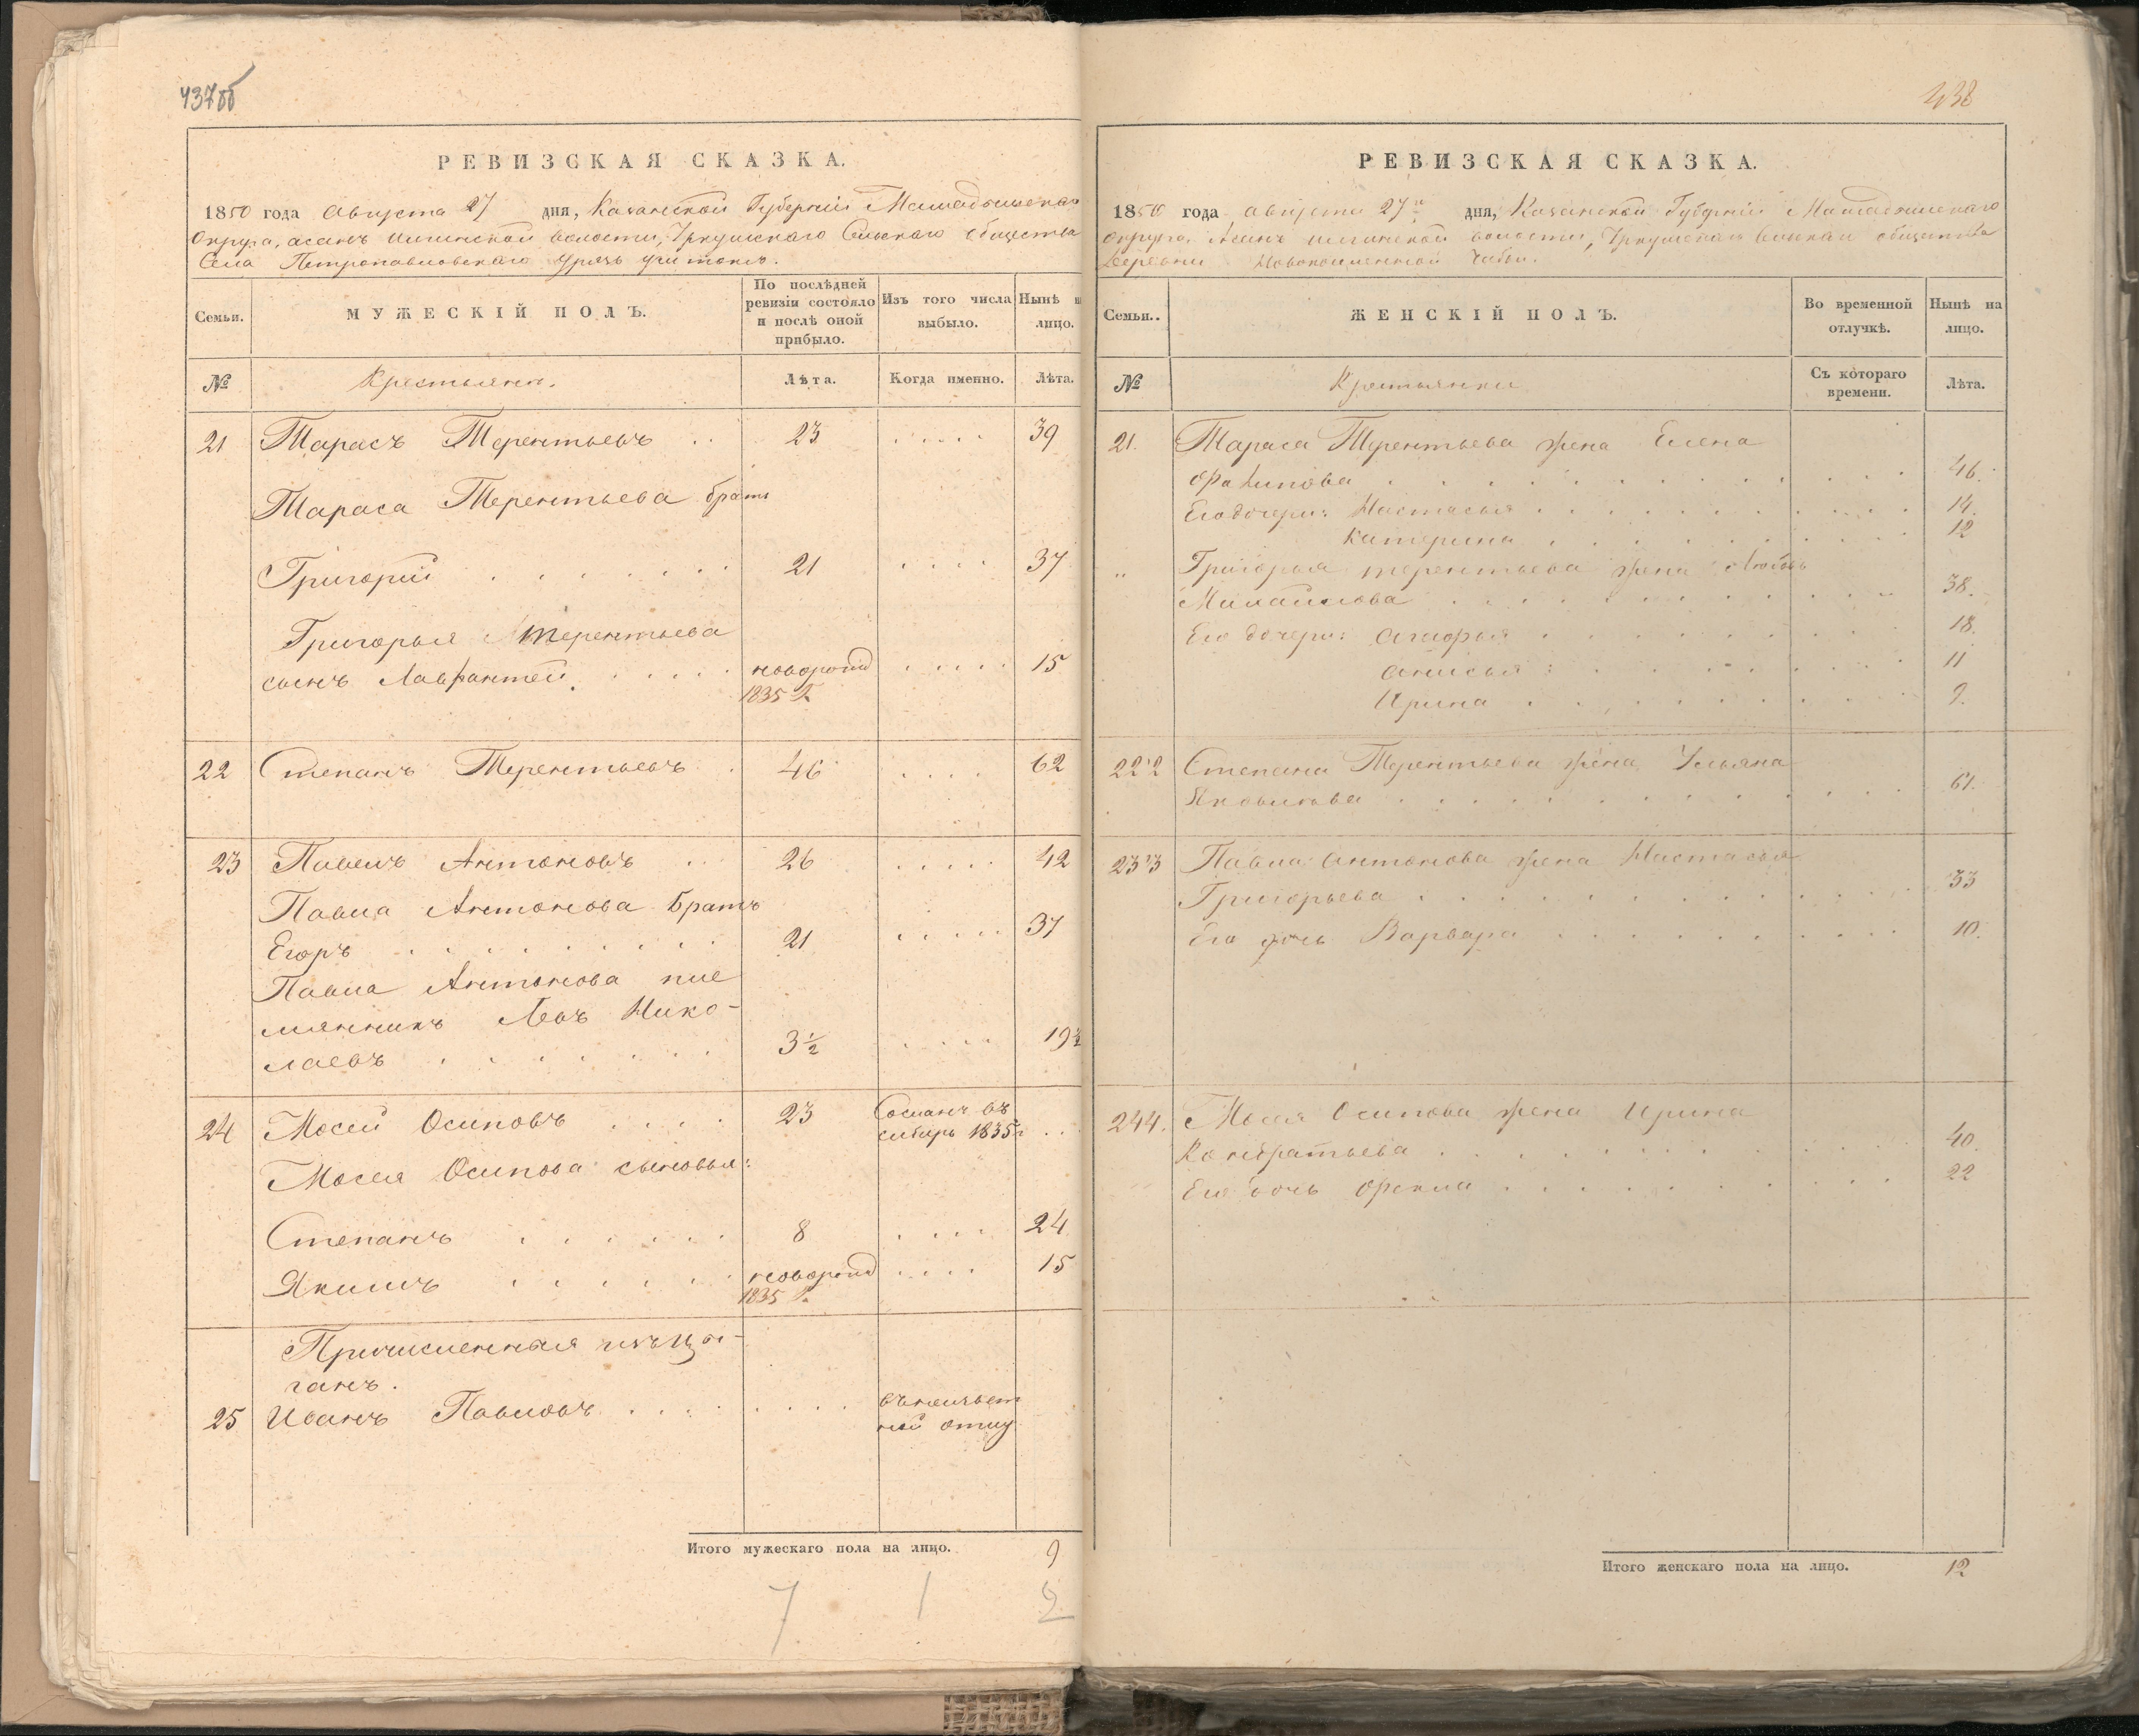 437об
РЕВИЗСКАЯ СКАЗКА.
1850 года Августа 27 дня, Казанской Губерніи Мамадышскаго
Округа, асанъ волости, Сельскаго общества
Села Петропавловскаго тожъ.
Семьи.
МУЖЕСКІЙ ПОЛЪ.
По послѣдней ревизіи состояло и послѣ оной прибыло.
Изъ того числа выбыло.
Нынѣ на лицо.
№
Крестьяне.
Лѣта.
Когда именно.
Лѣта.
21 Тарасъ Терентьевъ . . 23 . . . . . 39
Тараса Терентьева братъ
Григорій . . . . . . . 21 . . . . 37
Григорья Терентьева
сынъ Лаврантей . . . . . новорожд . . . . . 15
1835 г.
22 Степанъ Терентьевъ . 46 . . . . 62
23 Павелъ Антоновъ . . 26 . . . . . 42
Павла Антонова братъ
Егоръ . . . . . . . . . 21 . . . . . 37
Павла Антонова пле
мянникъ Левъ Нико-
лаевъ . . . . . . . 3½ . . . . 19½
24 Мосей Осиповъ . . . . 23 Сосланъ въ
сибирь 1835 г . . .
Мосея Осипова сыновья:
Степанъ . . . . . . 8 . . . . 24
Якимъ . . . . . . новорожд . . . . 15
1835 г.
Причисленныя изъ цы-
ганъ.
25 Иванъ Павловъ . . . . . . . . въ неизвест
ной отлу
Итого мужескаго пола на лицо. 9
7 1 2
438
РЕВИЗСКАЯ СКАЗКА.
1850 года августа 27го дня, Казанской Губерніи Мамадышскаго
округа, волости, общества
Деревни Чабьи.
Семьи..
ЖЕНСКІЙ ПОЛЪ.
Во временной отлучкѣ.
Нынѣ на лицо.
№
Крестьянки
Съ котораго времени.
Лѣта.
21. Тараса Терентьева жена Елена
Филипова . . . . . . . . . . . 46.
Его дочери: Настасья . . . . . . . . . 14.
Катерина . . . . . . . . 12
„ Григорья терентьева жена Любовь
Михайлова . . . . . . . . . . 38.
Его дочери: Агафья . . . . . . . . . 18.
Анисья : . . . . . . . 11
Ирина . . . . . . . . 9.
22 22 Степана Терентьева жена Ульяна
Яковлева . . . . . . . . . . . . 61.
23 23 Павла Антонова жена Настасья
Григорьева . . . . . . . . . . . 33
Его дочь Варвара . . . . . . . . . 10.
24 4. Мосея Осипова жена Ирина
Кондратьева . . . . . . . . . . 40.
Его дочь Фекла . . . . . . . . . 22
Итого женскаго пола на лицо. 12